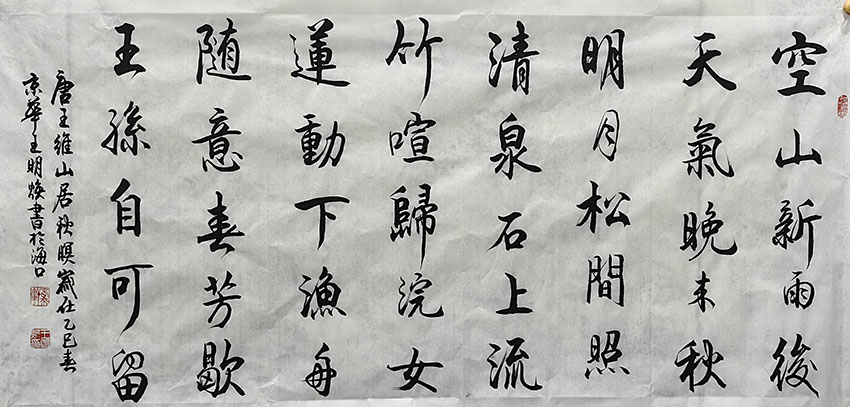 空山新雨後
天氣晚来秋
明月松間照
清泉石上流
竹喧歸浣女
蓮動下漁舟
随意春芳歇
王孫自可留
唐王維山居秋暝歲在乙巳春
京華王明煥書於海口